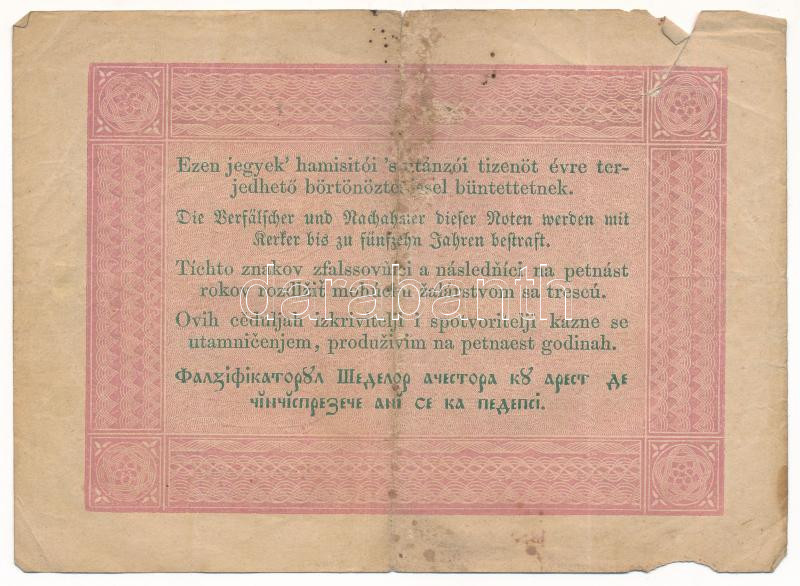 Ezen jegyek' hamisitói 's utánzói tizenöt évre ter-
jedhető börtönöztetéssel büntettetnek.
Die Verfälscher und Nachahmer dieser Noten werden mit
Kerker bis zu fünfzehn Jahren bestraft.
Tíchto znakov zfalssovňíci a následňíci na petnást
rokov rozďlžiť žalárstvom sa trescú.
Ovih ceduljah izkrivitelji i spotvoritelji kazne se
utamničenjem, produživim na petnaest godinah.
Фалꙃіфікаторꙋл Шеделор ачестора кꙋ арест де
чінчіспрезече ані се ва педепсі.
darabanth